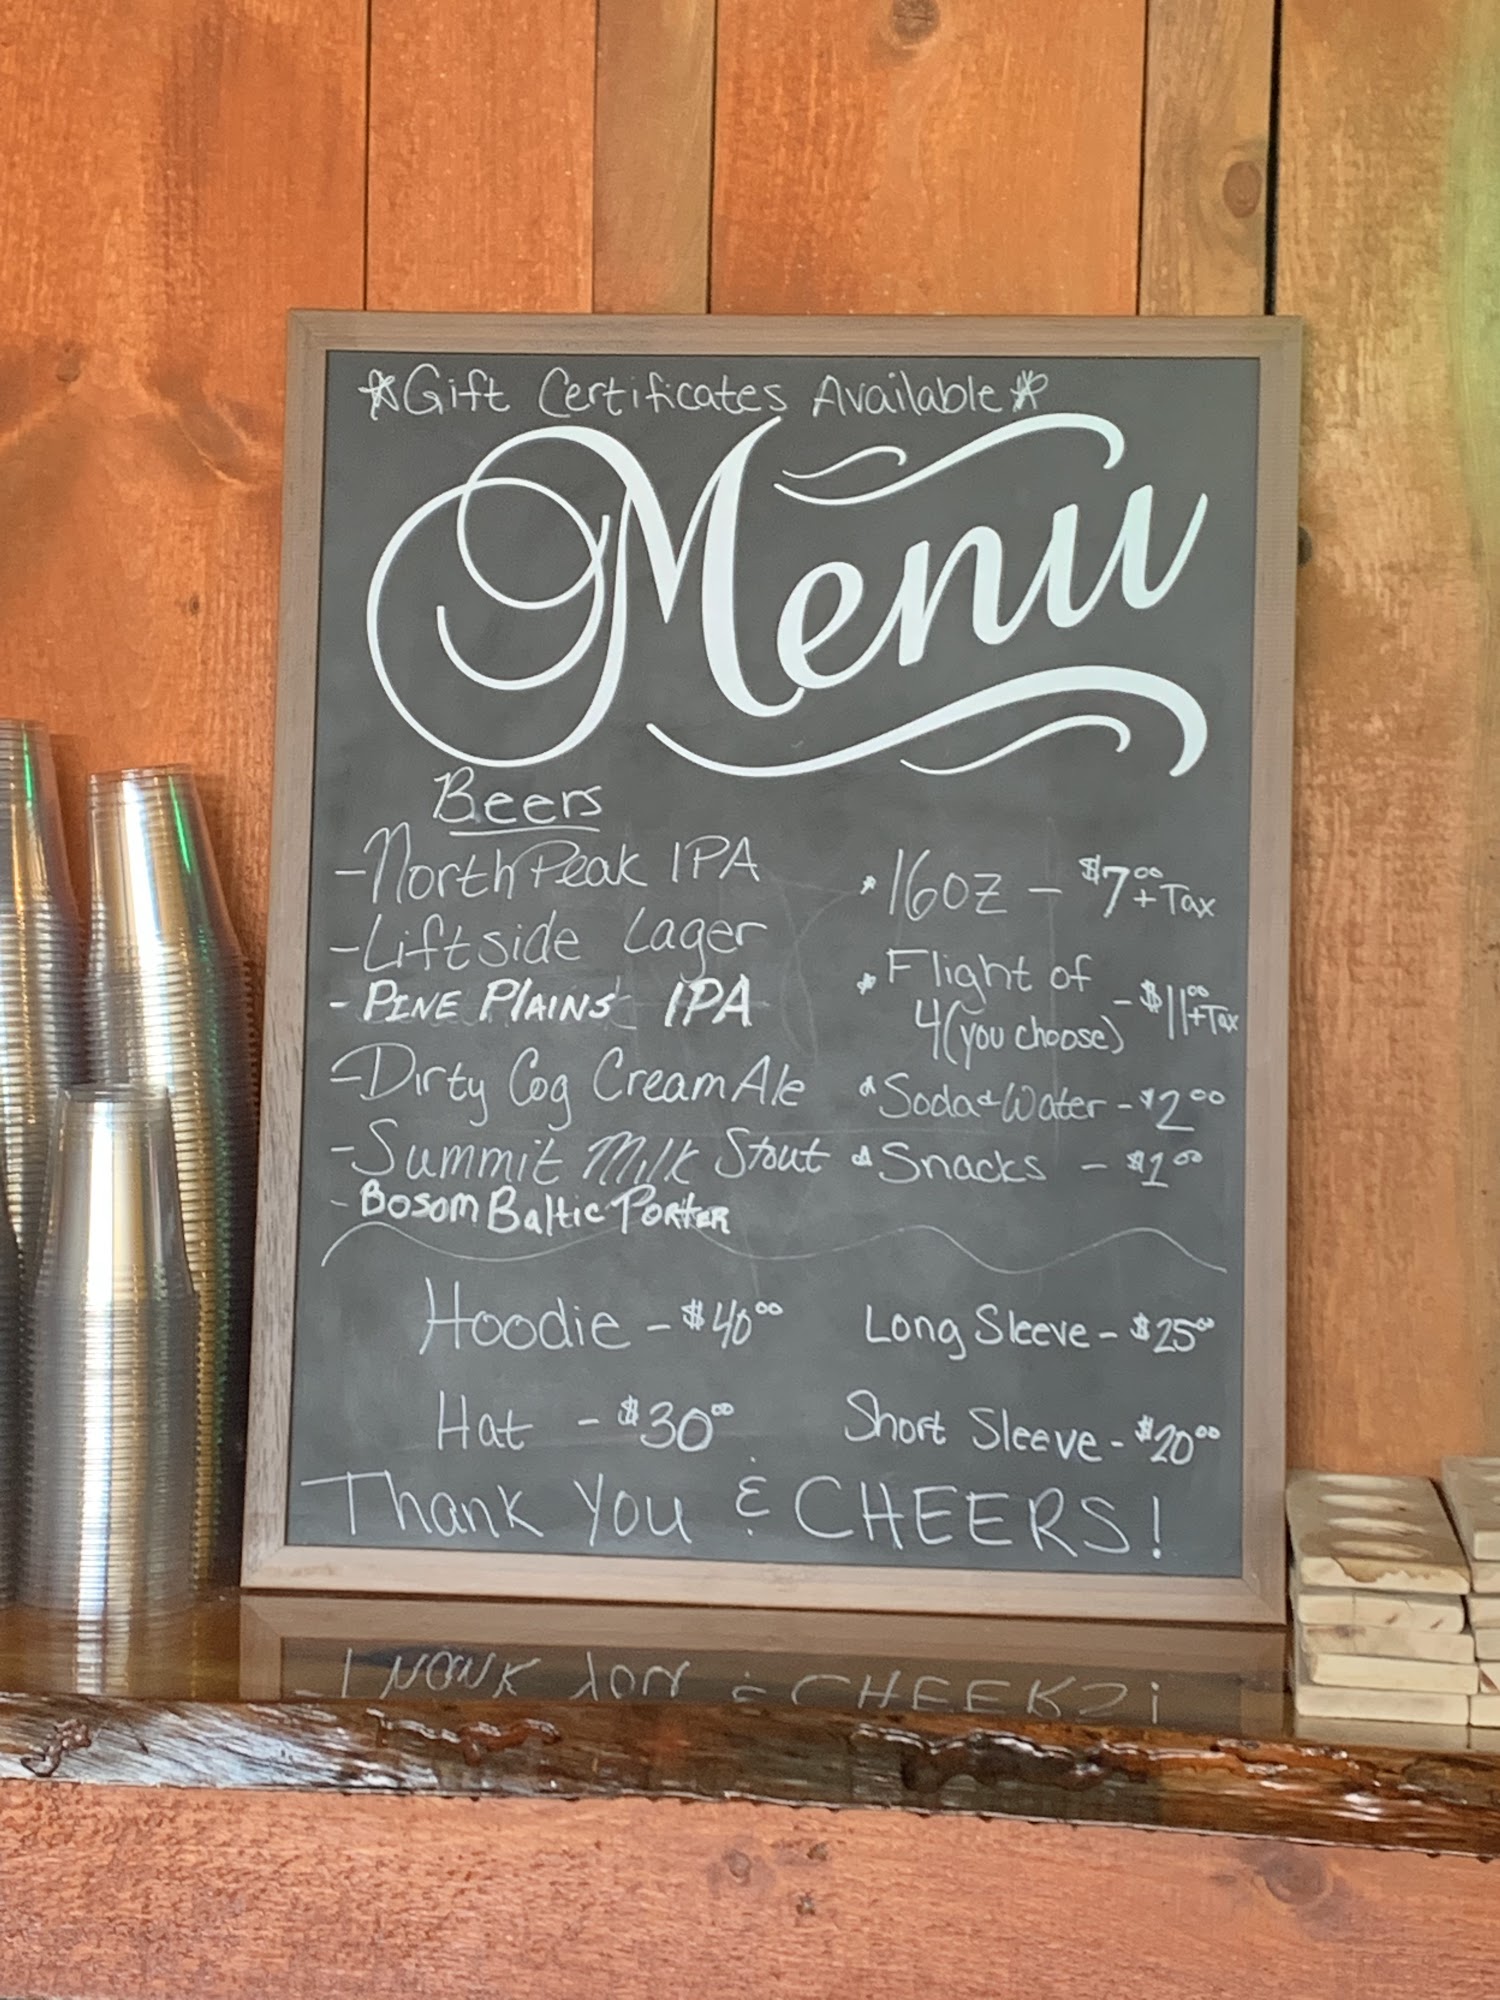 *Gift Certificates Available*
Menu
Beers
-North Peak IPA
-Liftside Lager
-PINE PLAINS IPA
-Dirty Cog Cream Ale
-Summit Milk Stout
-Bosom Baltic PORTER
*16oz - $7.00 + Tax
*Flight of
4 (you choose) - $11.00 + Tax
*Soda & Water - $2.00
*Snacks - $1.00
Hoodie - $40.00
Long Sleeve - $25.00
Hat - $30.00
Short Sleeve - $20.00
Thank You & CHEERS!